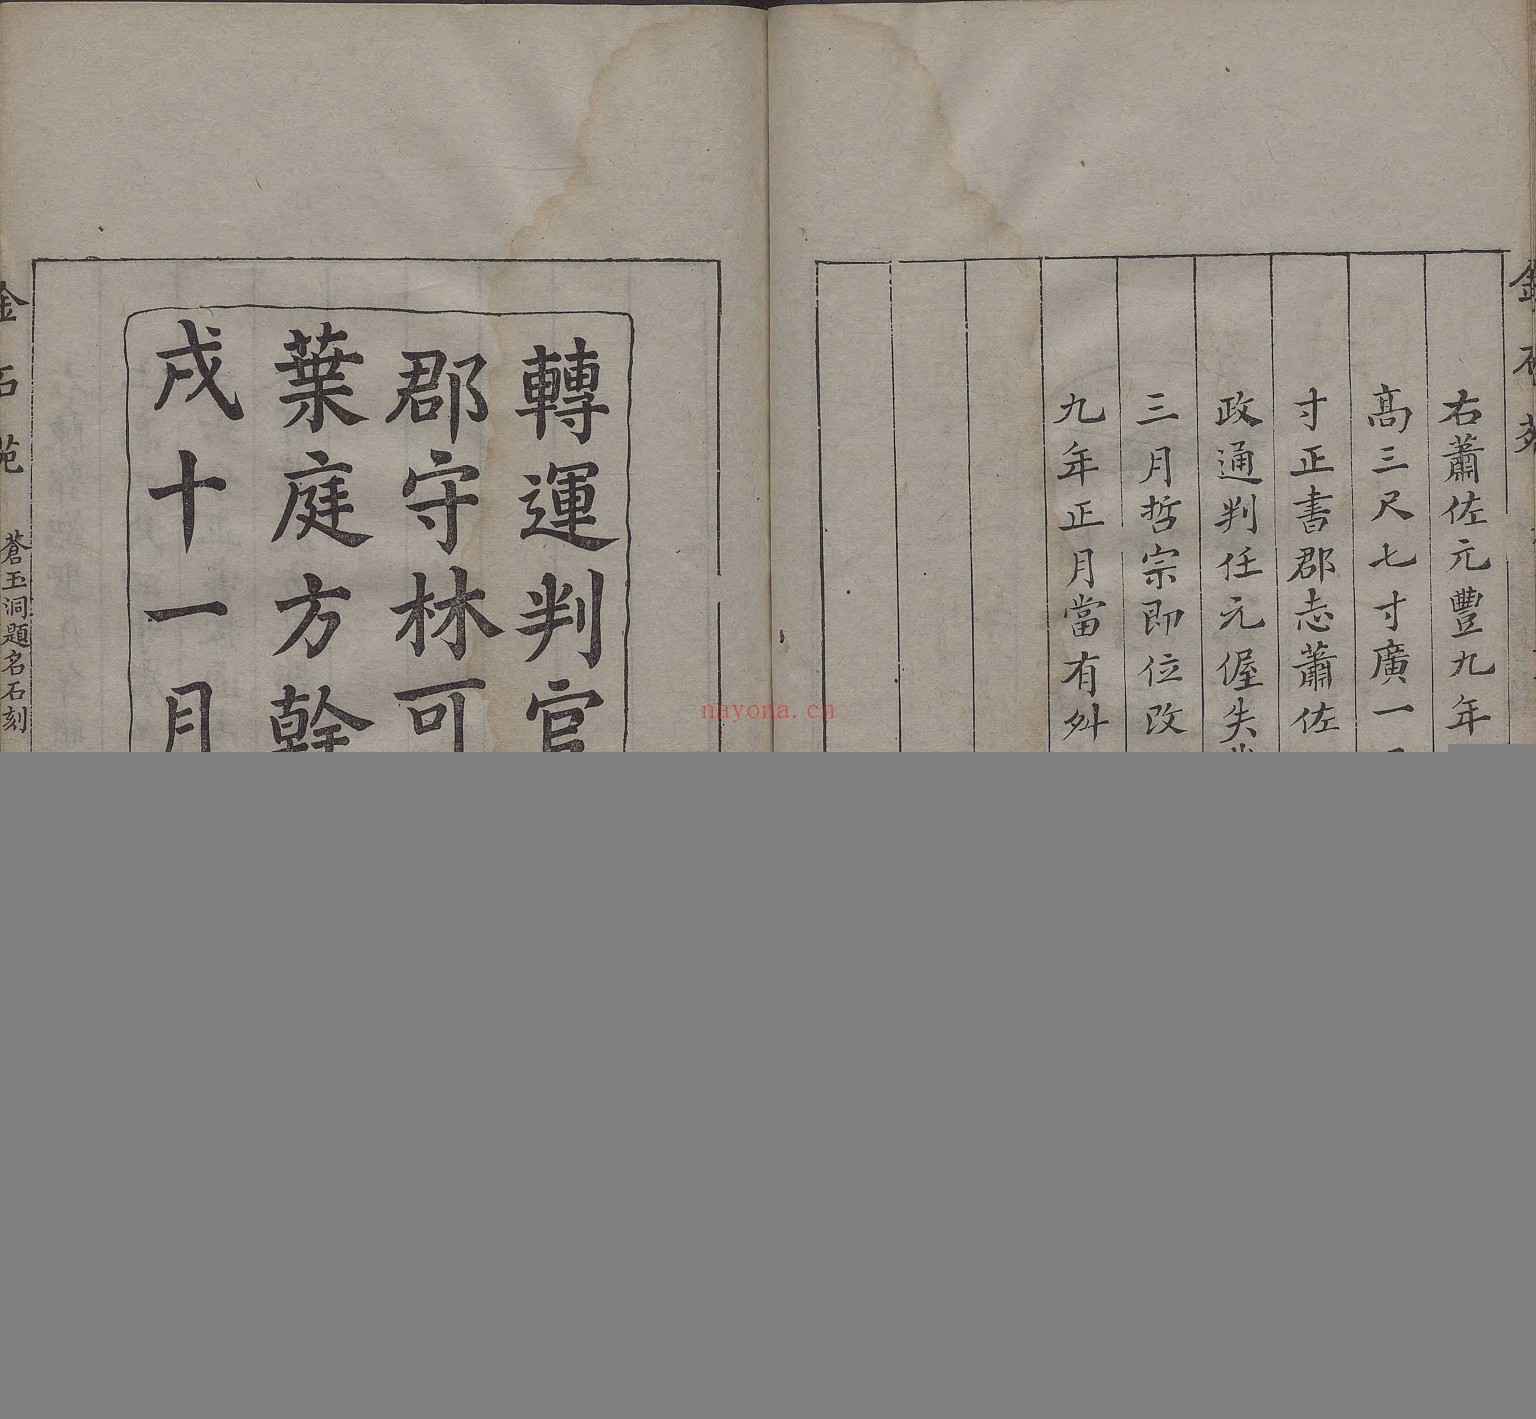 右蕭佐元豐九年
高三尺七寸廣一
寸正書郡志蕭佐
政通判任元偓失
三月哲宗即位改
九年正月當有舛
轉運判官
郡守林可
葉庭方幹
戌十一月
金石苑
蒼玉洞題名石刻
nayona.cn